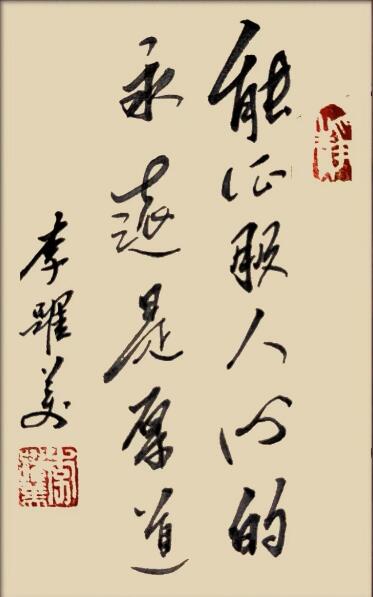 能征服人心的
永远是厚道
李躍美